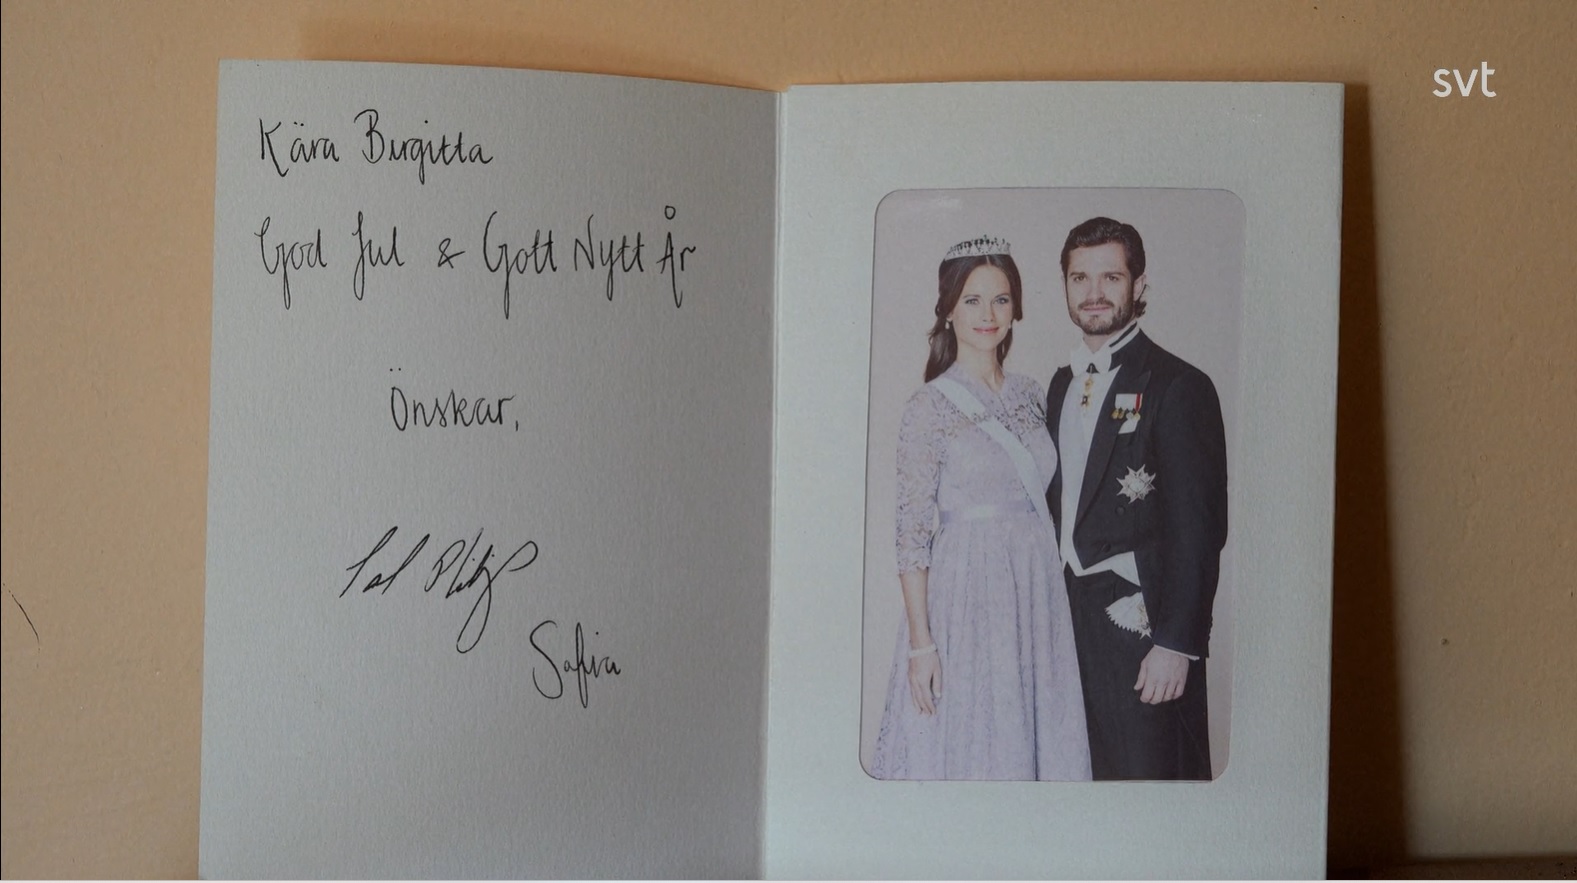 Kära Birgitta
God Jul & Gott Nytt År
Önskar,
Carl Philip
Sofia
svt